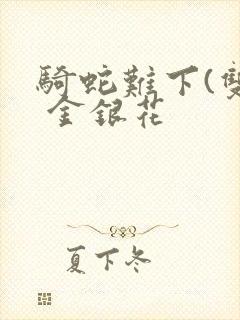 騎蛇難下(雙
金銀花
夏下冬